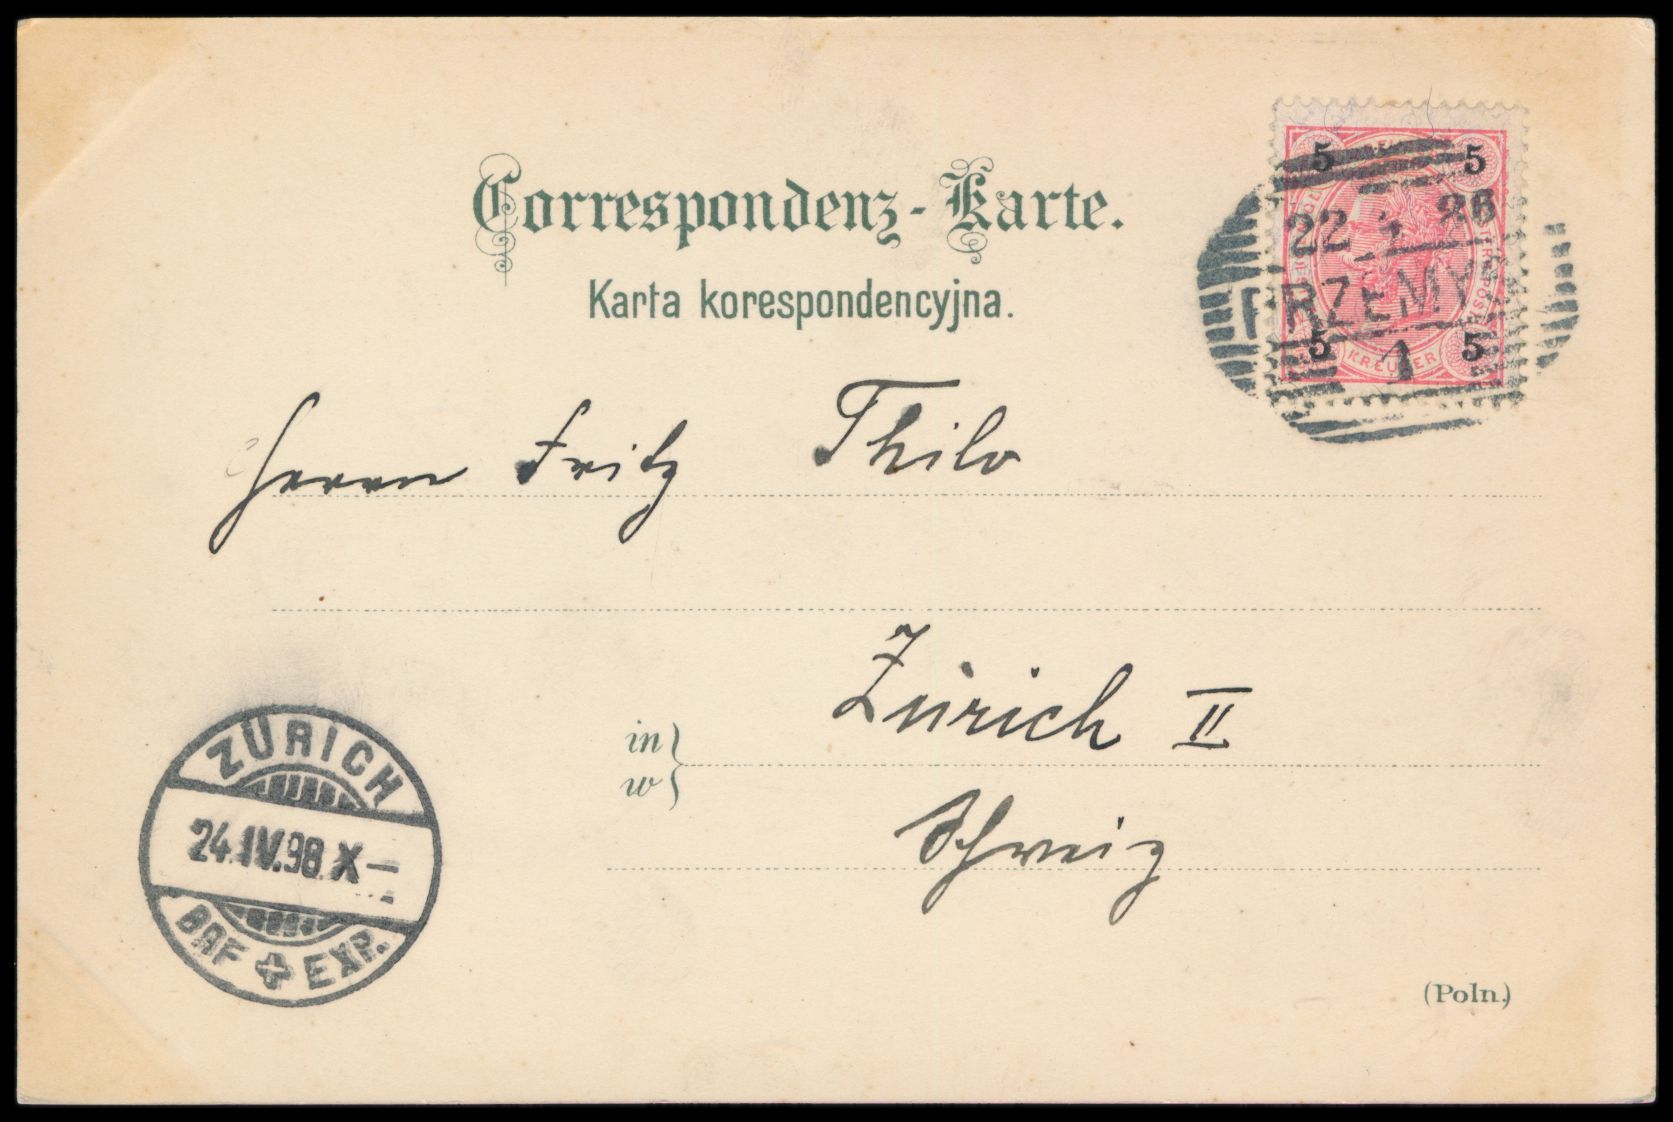 Correspondenz-Karte.
Karta korespondencyjna.
5 5
22 4 98
PRZEMYŚL
5 KREUZER 5
1
Herrn Fritz Thilo
Zürich II
in
w
Schweiz
ZÜRICH
24.IV.98.X-
BRF EXP.
(Poln.)